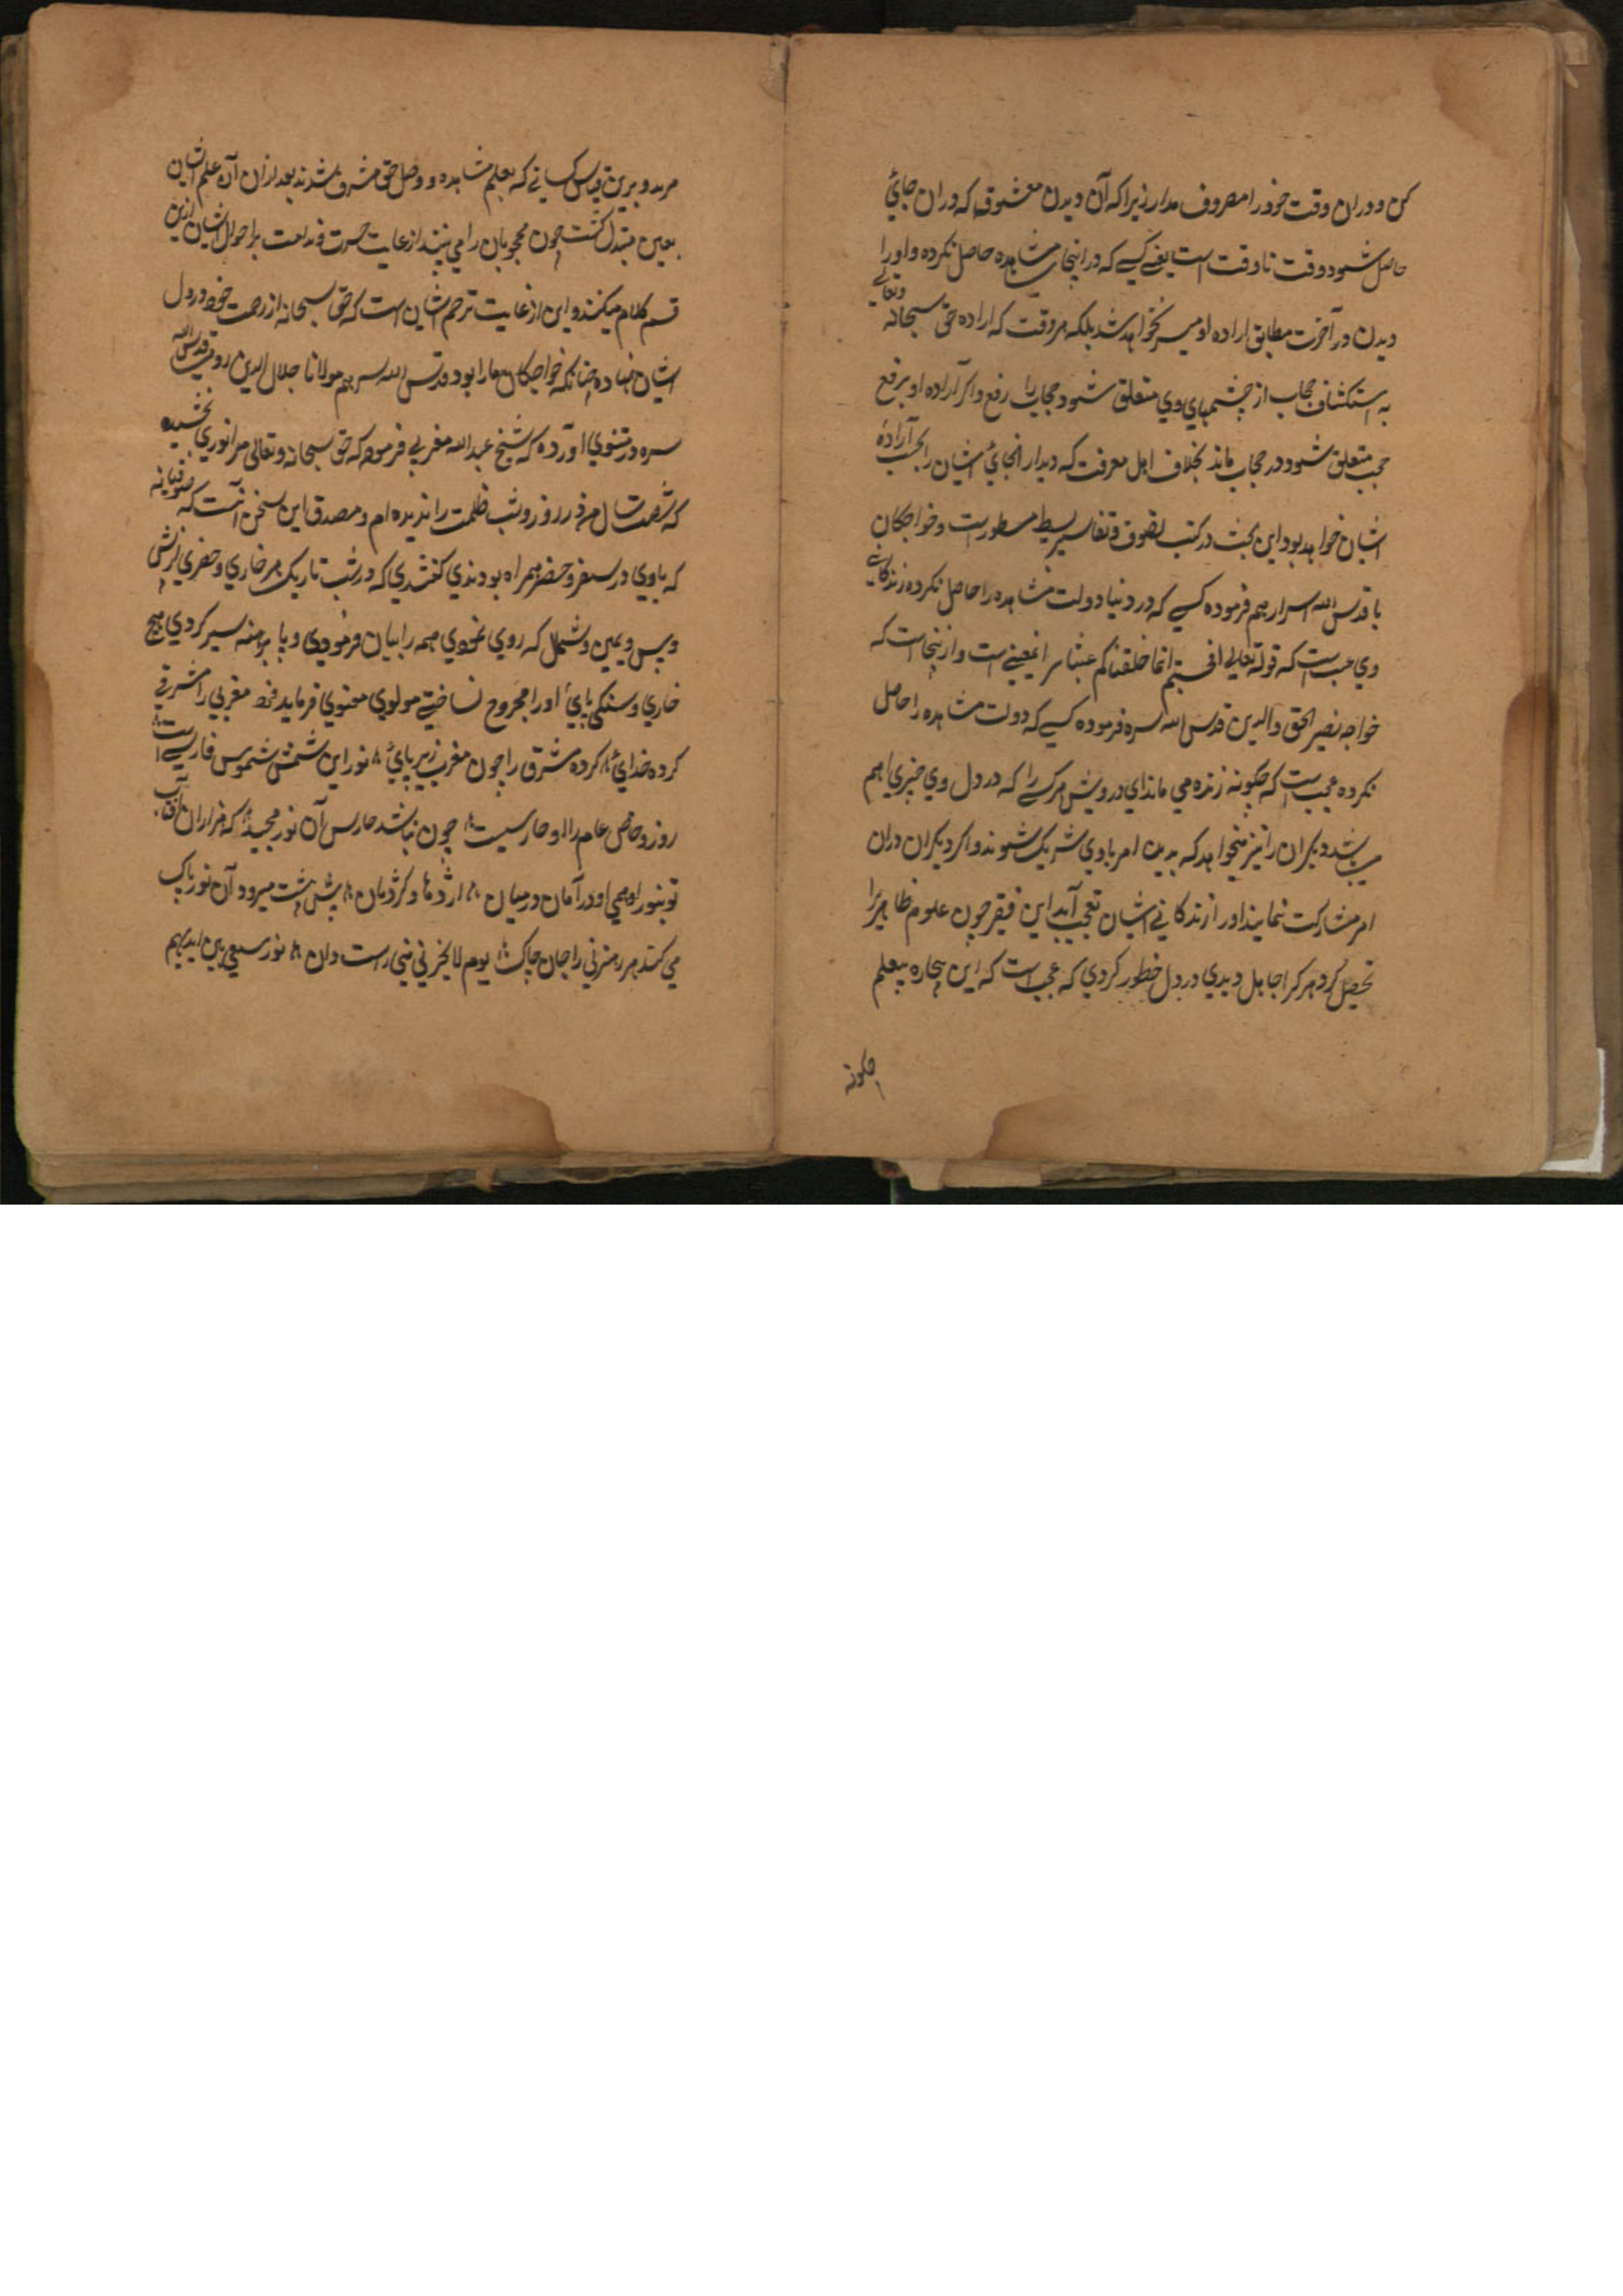 کن و دران وقت خود را مصروف مدار زیرا که آن دیدن معشوق که دران جائ
حاصل شود وقت نا وقت است یعنے کسے که در اینجا مشاهده حاصل نکرده و او را
دیدن در آخرت مطابق اراده او میسر نخواهد شد بلکه هر وقت که اراده حق سبحانه وتعالے
به استکشاف حجاب از چشمهای وی متعلق شود حجاب را رفع و اگر اراده او برفع
حجب متعلق شود در حجاب ماند بخلاف اهل معرفت که دیدار انجائ ایشان را بحسب اراده
ایشان خواهد بود این بحث در کتب تصوف و تفاسیر بسیط مسطور است و خواجکان
ما قدس الله اسرارهم فرموده کسے که در دنیا دولت مشاهده را حاصل نکرده زندکانے
وی عبث است که قوله تعالی افحسبتم انما خلقناکم عبثا بر این معنی است و ازینجاست که
خواجه نصیر الحق والدین قدس الله سره فرموده کسے که دولت مشاهده را حاصل
نکرده عجب است که چکونه زنده می ماند ای درویش هر کسے را که در دل وی چیزی اهم
میباشد دیکران را نیز میخواهد که بدین امر با وی شریک شوند و اکر دیکران دران
امر مشارکت ننمایند او را از زندکانے ایشان تعجب آید این فقیر چون علوم ظاهر را
تحصیل کرد هر کرا جاهل دیدی در دل خطور کردی که عجب است که این بیچاره بیعلم
چکونه
میزید و برین قیاس کسانے که بعلم مشاهده و وصل حق مشرف شدند بعد ازان آن علم ایشان
بعین مبتدل کشت چون محجوبان را می بینند از غایت حسرت و ندامت بر احوال ایشان ازین
قسم کلام میکنند و این از غایت ترحم ایشان است که حق سبحانه از رحمت خود در دل
ایشان نهاده چنانکه خواجکان ما را بود قدس الله سرهم مولانا جلال الدین رومی قدس الله
سره در مثنوی آورده که شیخ عبد الله مغربی فرموده که حق سبحانه وتعالی مرا نوری بخشیده
که شصت سال من در روز و شب ظلمت را ندیده ام و مصدق این سخن آنست که صوفیانه
که با وی در سفر و حضر همراه بودندی کفتندی که در شب تاریک هر خاری و حفری از پیش
و پس و یمین و شمال که روی نمودی همه را بیان فرمودی و پا برهنه سیر کردی هیچ
خاری و سنکی پائ او را مجروح نساختے مولوی معنوی فرماید مغربی را مشرقی
کرده خدائ کرده مشرق را چون مغرب زیر پائ نور این شمس شموس فارسے است
روز و خاص عام را او حارسیست چون نباشد حارس آن نور مجید که هزاران آفتاب
تو بنور او همی رو در امان در میان اژدها و کژدمان پیش پیشت میرود آن نور پاک
می کند هر رهزنی را چاک چاک یوم لا یخزی نبی راست دان نور یسعی بین ایدیهم